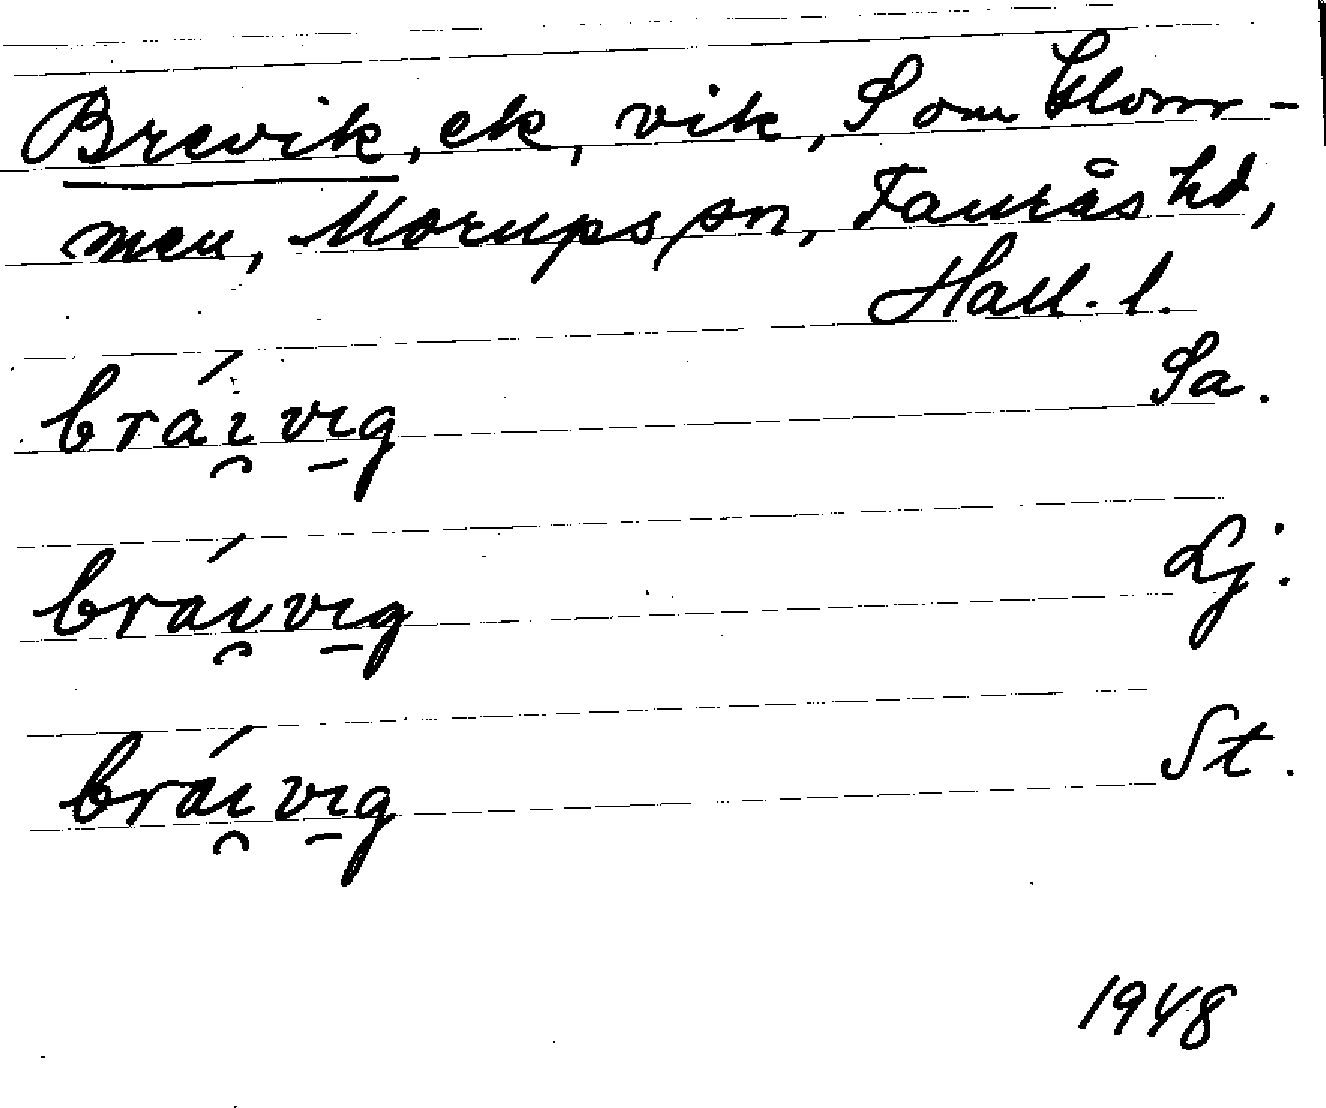 Brevik, ek, vik, S om Glom-
men, Morups sn, Faurås hd,
Hall. l.
brái̯vı̱g Sa.
brái̯vı̱g Lj.
brái̯vı̱g St.
1948